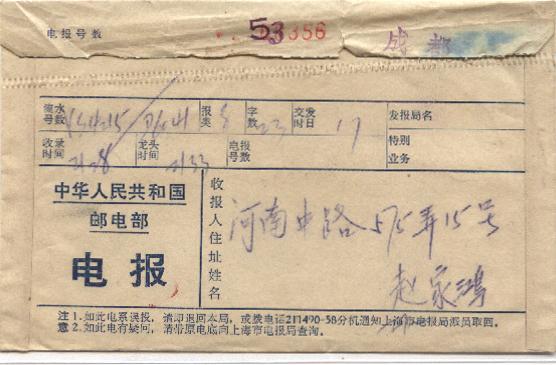 电报号数 53 356 成都
流水号数 报类 字数 23 交发时日 17 发报局名
收录时间 2128 龙头时间 2133 电报号数 特别业务
中华人民共和国
邮电部
电报
收报人住址姓名
河南中路575弄15号
赵家鸿
注意 1.如此电系误投，请即退回本局，或拨电话211490-58分机通知上海市电报局派员取回。
2.如此电有疑问，请带原电底向上海市电报局查询。